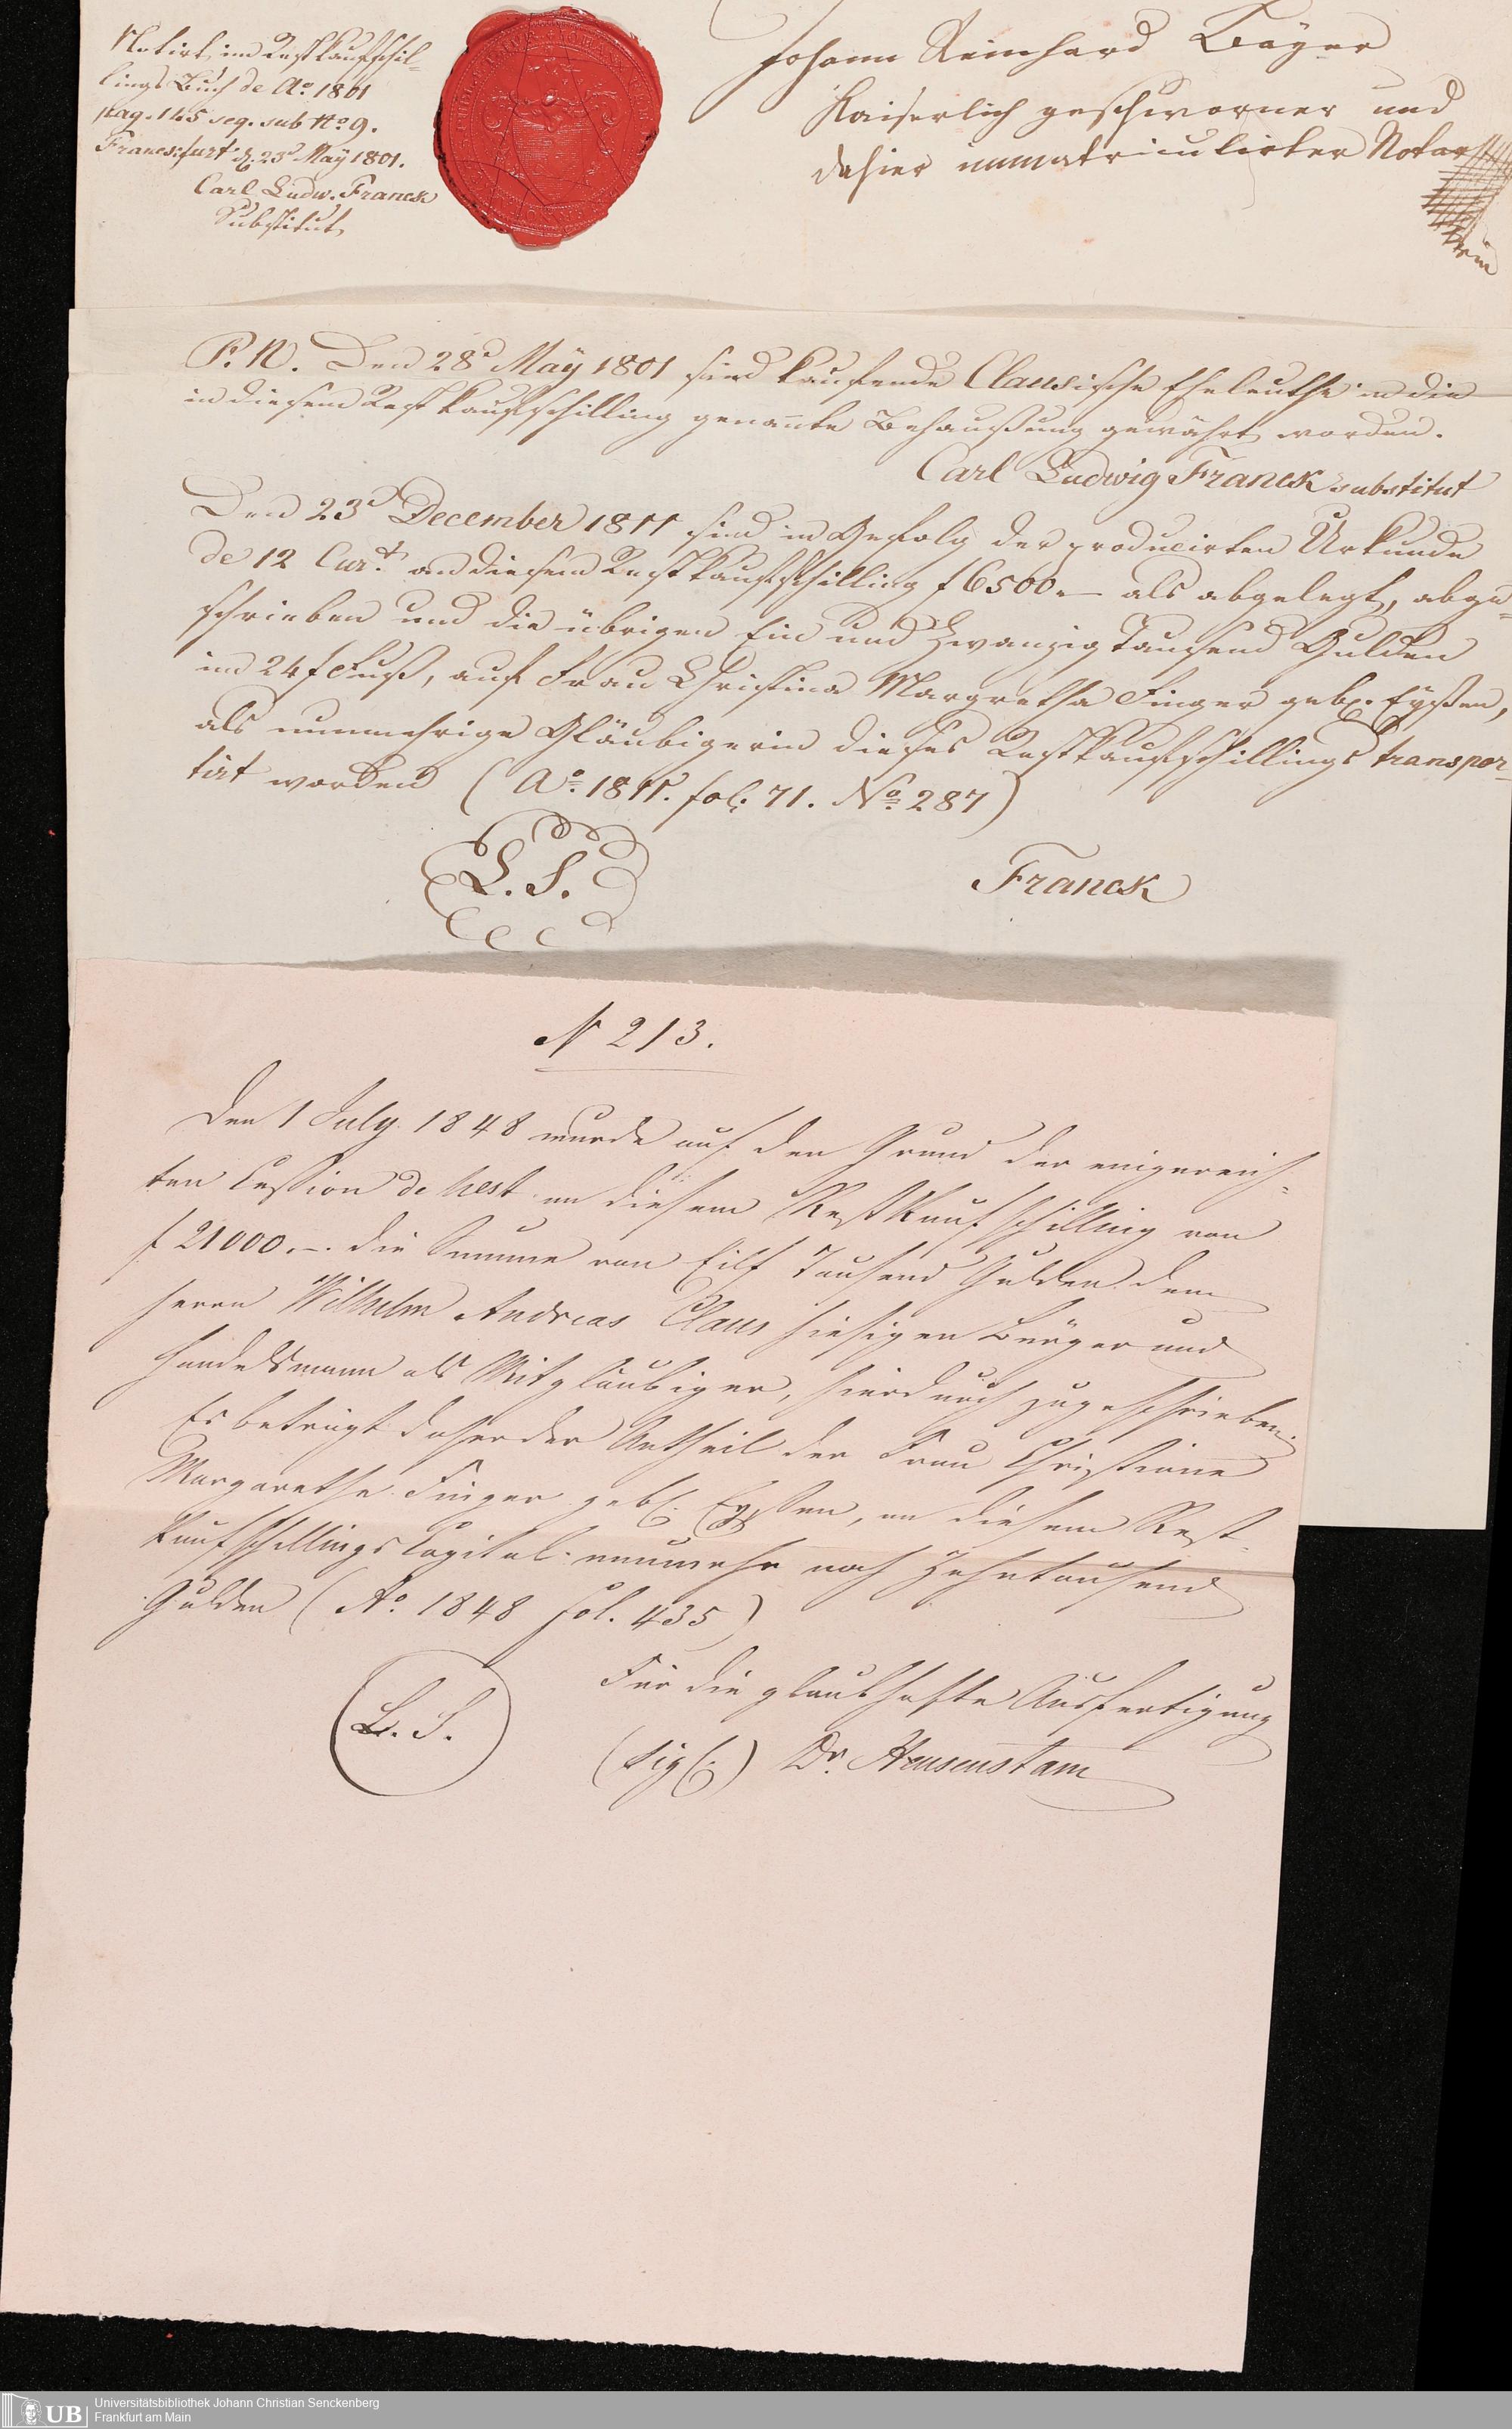 Notirt im Restkaufschil-
lings Buch de Ao. 1801
pag. 145 seq. sub No. 9.
Francfurt d. 23d May 1801.
Carl Ludw. Franck
Substitut
Johann Reinhard Bäyer
Kaiserlich geschworner und
dahier immatriculirter Notar
P. N. Den 28d May 1801 sind kaufende Clausische Eheleuthe in die
in diesem Restkaufschilling genannte Behaußung gewährt worden.
Carl Ludwig Franck substitut
Den 23d December 1811 sind in Gefolg der producirten Urkunde
de 12 Curt. an diesem Restkaufschilling f 6500.— als abgelegt, abge-
schrieben und die übrigen Ein und Zwanzig Tausend Gulden
im 24 f Fuß, auf Frau Christina Margretha Finger geb. Eyßen,
als nunmehrige Gläubigerin dieses Restkaufschillings transpor-
tirt worden (Ao. 1811. fol. 71. No. 287)
L. S.
Franck
N 213.
Den 1 July 1848 wurde auf den Grund der eingereich-
ten Cession de hest. an diesem Restkaufschilling von
f 21000.–. die Summe von Eilf Tausend Gulden dem
Herrn Wilhelm Andreas Claus hiesigen Bürger und
Handelsmann als Mitgläubiger, hierdurch zugeschrieben.
Es beträgt daher der Antheil der Frau Christiane
Margarethe Finger geb. Eyssen, an diesem Rest-
kaufschillings Capital nunmehr noch Zehntausend
Gulden (Ao. 1848 fol. 435)
Für die glaubhafte Ausfertigung
L. S.
(sig.) Dr. Heusenstam
UB
Universitätsbibliothek Johann Christian Senckenberg
Frankfurt am Main